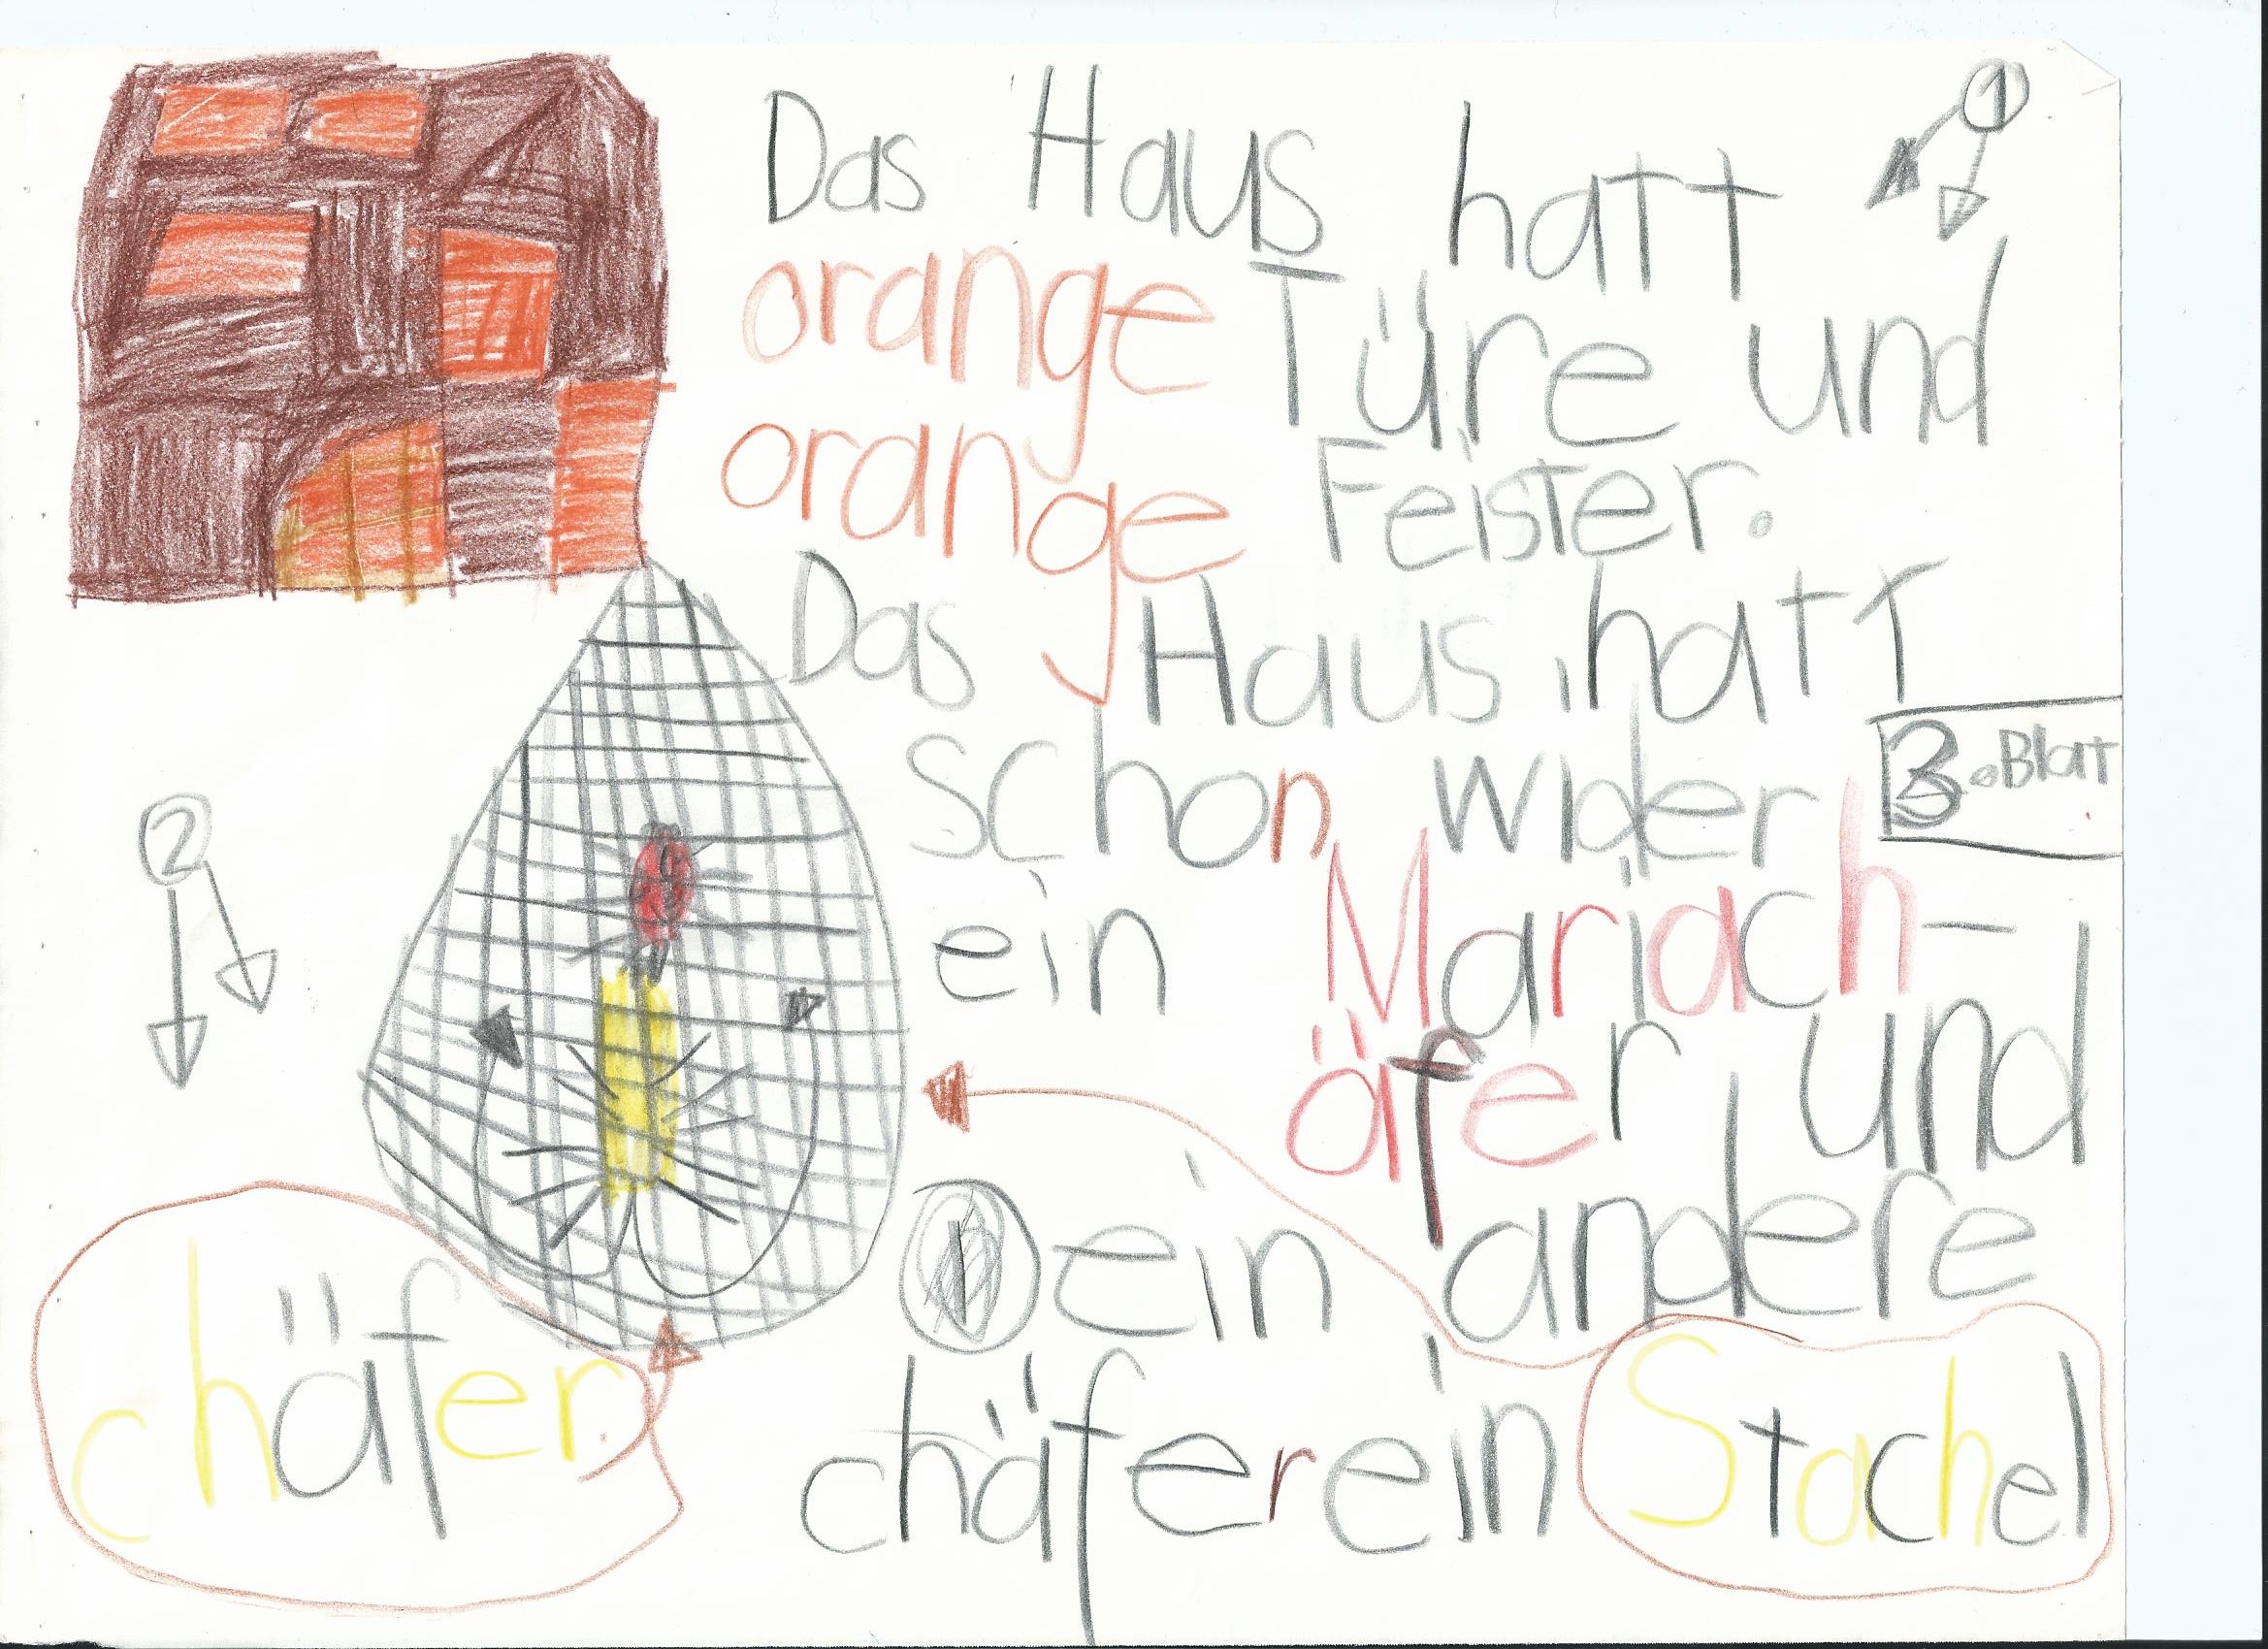 ①
Das Haus hatt
orange Türe und
orange Feister.
Das Haus hatt
schon wider
3. Blatt
ein Mariach-
äfer und
① ein andere
chäfer ein Stachel
②
chäfer.